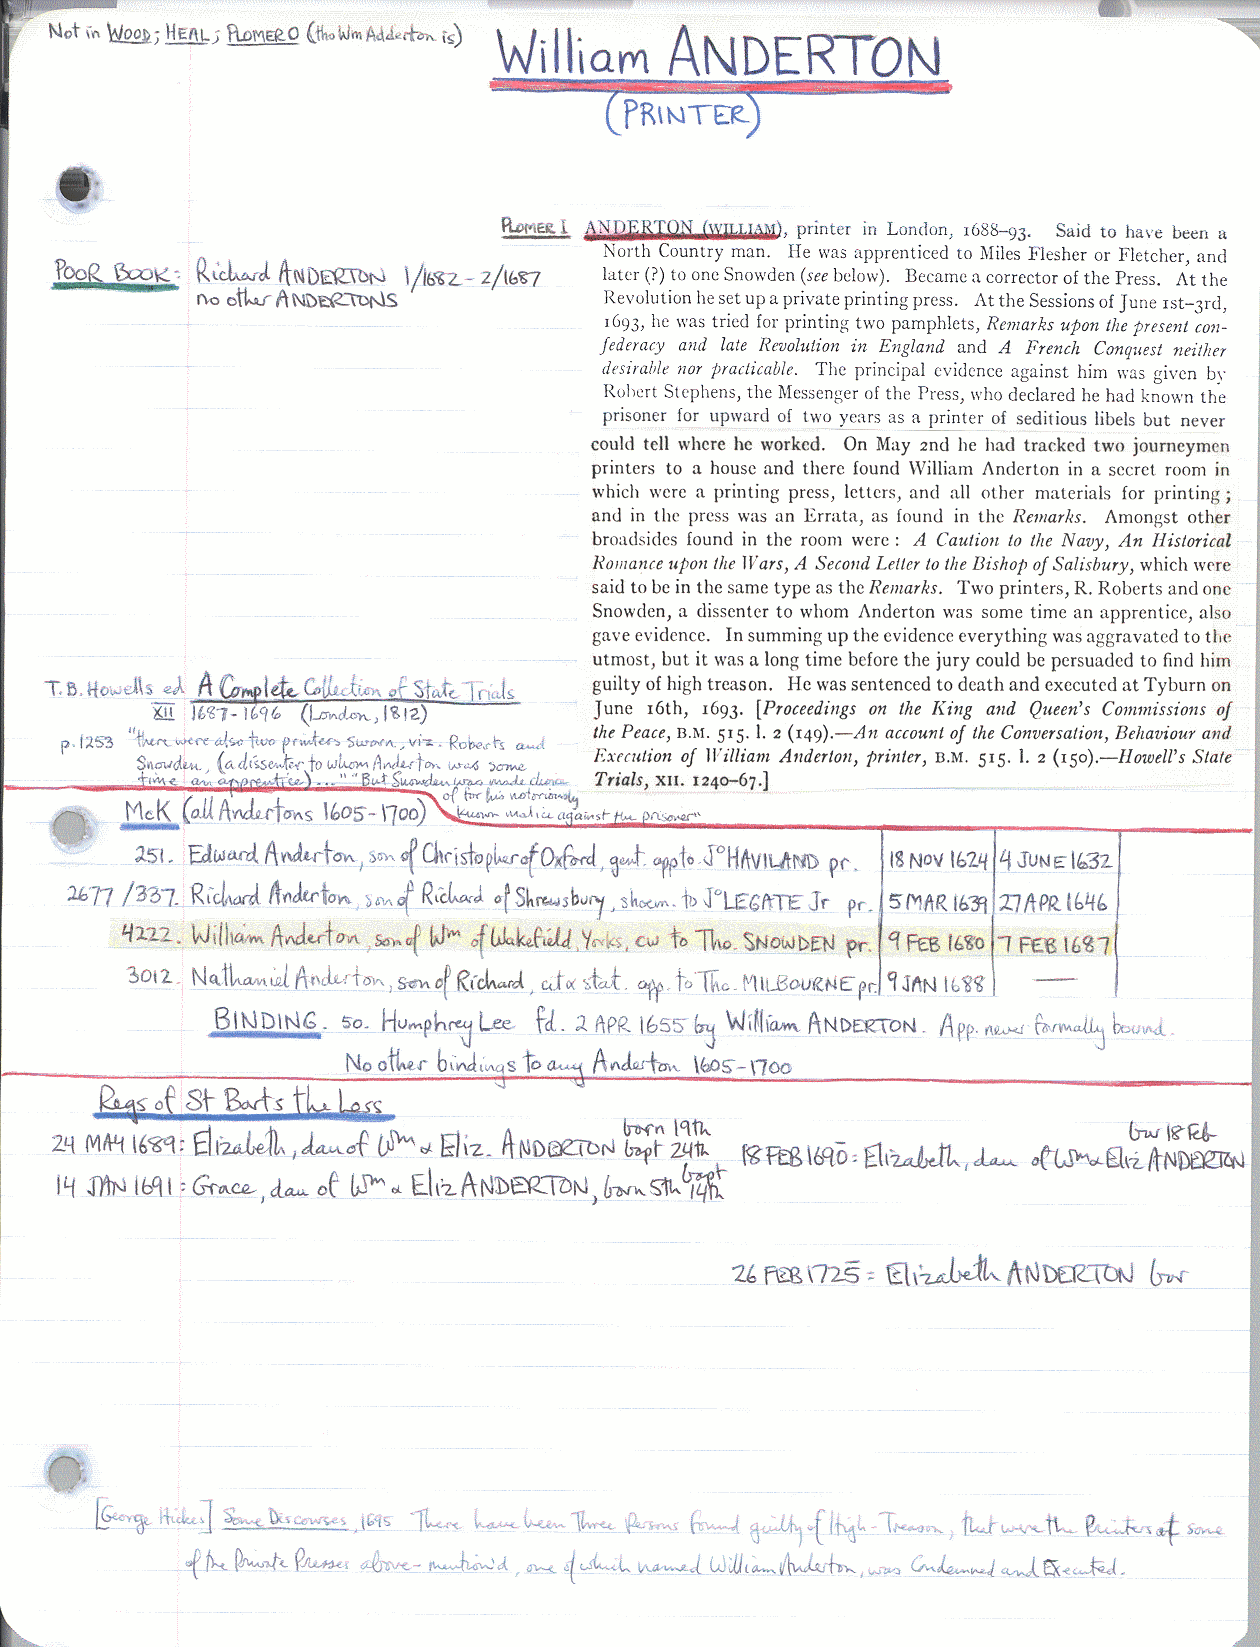 Not in WOOD; HEAL; PLOMER O (tho Wm Adderton is)
William ANDERTON
(PRINTER)
PLOMER I ANDERTON (WILLIAM), printer in London, 1688–93. Said to have been a
North Country man. He was apprenticed to Miles Flesher or Fletcher, and
later (?) to one Snowden (see below). Became a corrector of the Press. At the
Revolution he set up a private printing press. At the Sessions of June 1st–3rd,
1693, he was tried for printing two pamphlets, Remarks upon the present con-
federacy and late Revolution in England and A French Conquest neither
desirable nor practicable. The principal evidence against him was given by
Robert Stephens, the Messenger of the Press, who declared he had known the
prisoner for upward of two years as a printer of seditious libels but never
could tell where he worked. On May 2nd he had tracked two journeymen
printers to a house and there found William Anderton in a secret room in
which were a printing press, letters, and all other materials for printing;
and in the press was an Errata, as found in the Remarks. Amongst other
broadsides found in the room were: A Caution to the Navy, An Historical
Romance upon the Wars, A Second Letter to the Bishop of Salisbury, which were
said to be in the same type as the Remarks. Two printers, R. Roberts and one
Snowden, a dissenter to whom Anderton was some time an apprentice, also
gave evidence. In summing up the evidence everything was aggravated to the
utmost, but it was a long time before the jury could be persuaded to find him
guilty of high treason. He was sentenced to death and executed at Tyburn on
June 16th, 1693. [Proceedings on the King and Queen's Commissions of
the Peace, B.M. 515. l. 2 (149).—An account of the Conversation, Behaviour and
Execution of William Anderton, printer, B.M. 515. l. 2 (150).—Howell's State
Trials, XII. 1240–67.]
POOR BOOK: Richard ANDERTON 1/1682 - 2/1687
no other ANDERTONS
T.B. Howells ed A Complete Collection of State Trials
XII 1687-1696 (London, 1812)
p. 1253 "there were also two printers sworn, viz. Roberts and
Snowden, (a dissenter to whom Anderton was some
time an apprentice)..." "But Snowden was made choice
of for his notoriously
known malice against the prisoner"
McK (all Andertons 1605-1700)
251. Edward Anderton, son of Christopher of Oxford, gent. app to Jº HAVILAND pr. 18 NOV 1624 4 JUNE 1632
2677/337. Richard Anderton, son of Richard of Shrewsbury, shoem. to Jº LEGATE Jr pr. 5 MAR 1639 27 APR 1646
4222. William Anderton, son of Wm of Wakefield, Yorks, cw to Tho. SNOWDEN pr. 9 FEB 1680 7 FEB 1687
3012. Nathaniel Anderton, son of Richard, cit & stat. app. to Tho. MILBOURNE pr. 9 JAN 1688 —
BINDING. 50. Humphrey Lee fd. 2 APR 1655 by William ANDERTON. App. never formally bound.
No other bindings to any Anderton 1605-1700
Regs of St Barts the Less
24 MAY 1689: Elizabeth, dau of Wm & Eliz. ANDERTON born 19th bapt 24th
18 FEB 1690: Elizabeth, dau of Wm & Eliz ANDERTON bur 18 Feb
14 JAN 1691: Grace, dau of Wm & Eliz ANDERTON, born 5th bapt 14th
26 FEB 1725 = Elizabeth ANDERTON bur
[George Hickes] Some Discourses, 1695 There have been Three Persons found guilty of High-Treason, that were the Printers at some
of the Private Presses above-mention'd, one of which named William Anderton, was Condemned and Executed.